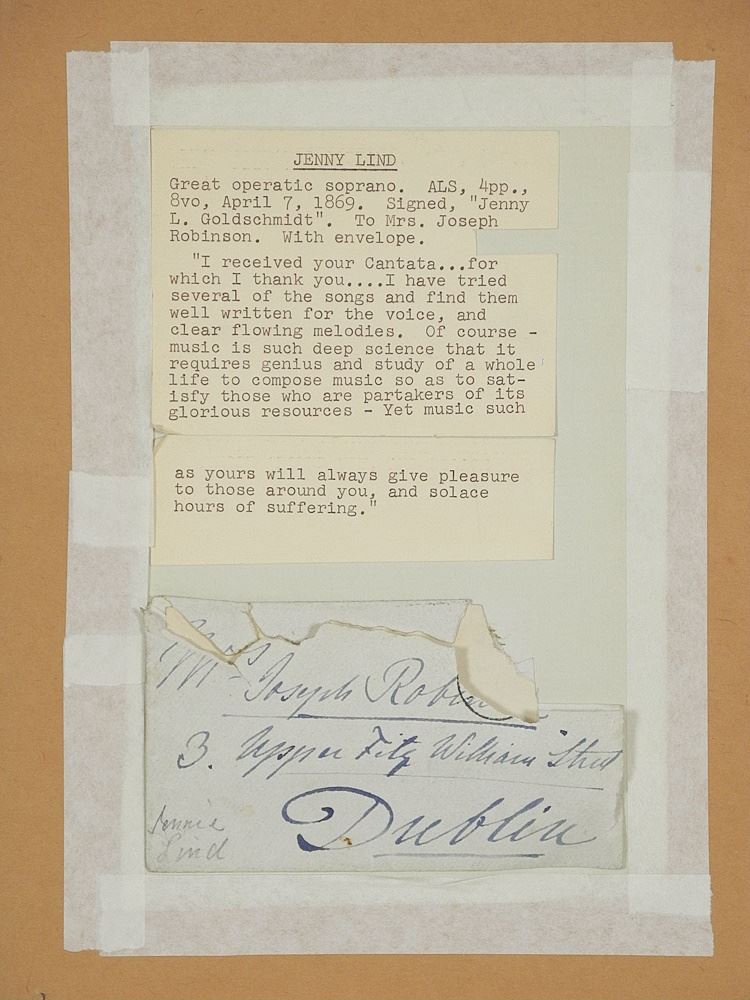 JENNY LIND
Great operatic soprano. ALS, 4pp.,
8vo, April 7, 1869. Signed, "Jenny
L. Goldschmidt". To Mrs. Joseph
Robinson. With envelope.
"I received your Cantata...for
which I thank you....I have tried
several of the songs and find them
well written for the voice, and
clear flowing melodies. Of course -
music is such deep science that it
requires genius and study of a whole
life to compose music so as to sat-
isfy those who are partakers of its
glorious resources - Yet music such
as yours will always give pleasure
to those around you, and solace
hours of suffering."
Mrs Joseph Robin
3. Upper Fitz William Street
Dublin
Jennie
Lind